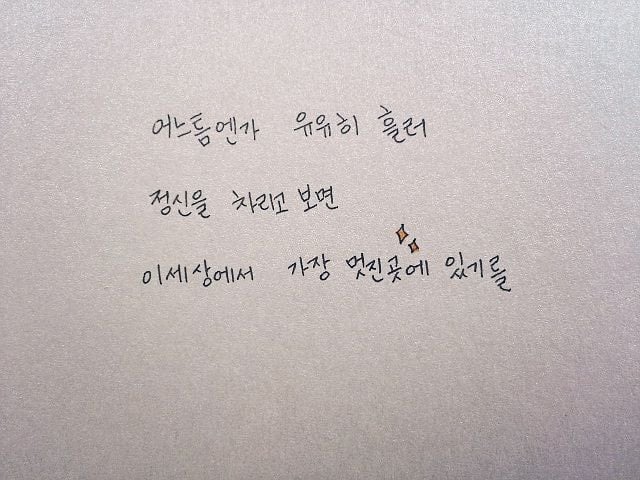 어느틈엔가 유유히 흘러
정신을 차리고 보면
이세상에서 가장 멋진곳에 있기를